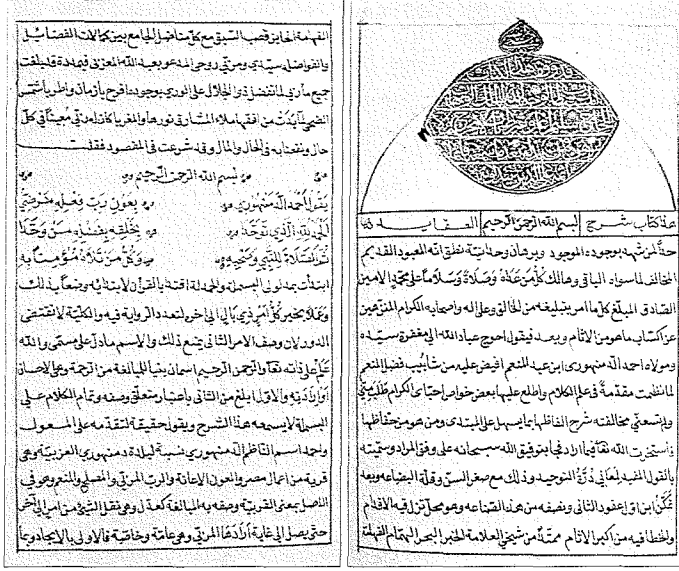 هذا كتاب شرح بسم الله الرحمن الرحيم العقايد
حمدا لمن شهد بوجوده الموجود وبرهان وحدانيته نطق انه المعبود القديم
المخالف لما سواه الباقي وهالك كل من عداه وصلاة وسلاما على محمد الامين
الصادق المبلغ كل ما امر بتبليغه من الخالق وعلى اله واصحابه الكرام المنزهين
عن اكتساب ما هو من الاثام وبعد فيقول احوج عباد الله الى مغفرة سيده
ومولاه احمد الدمنهوري ابن عبد المنعم افيض عليه من شآبيب فضل المنعم
لما نظمت مقدمة في علم الكلام واطلع عليها بعض خواص احبائي الكرام طلب مني
ولم تسعني مخالفته شرح الفاظها بما يسهل على المبتدي ومن هو من حفاظها
فاستخرت الله تعالى فيما اراد فجا بتوفيق الله سبحانه على وفق المراد وسميته
بالقول المفيد لمعاني درة التوحيد وذلك مع صغر السن وقلة البضاعه وبعد
تمكن ابن اول عقود الثاني ونصفه من هذه الصناعه وهو محل تزل فيه الاقدام
والخطا فيه من اكبر الاثام ممتد من شيخي العلامة الحبر البحر الهمام الفهامة
الفهامة الحايز قصب السبق مع كل مناضل الجامع بين كمالات الفضائل
والفواضل سيدي ومربي روحي المدعو بعبد الله المغربي فبمدده قد بلغت
جميع مأربي لما تفضل ذو الجلال على الورى بوجوده افرح يا زمان واطرب يا شمس
الضحى لما بدت من افقها ملاء المشارق نورها والمغربا كان له ربي معينا في كل
حال ونفعنا به في الحال والمال وقد شرعت في المقصود فقلت
بسم الله الرحمن الرحيم
يقول احمد الدمنهوري بعون رب فعله مرضي
الحمد لله الذي توحدا بخلقه بفضله من وحدا
ثم الصلاة للنبي وصحبه وكل من تلاه مؤمنا به
ابتدأت بمدلولي البسملة والحمدلة اقتداء بالقرآن لابتدائه وضعا بذلك
وعملا بخبر كل امر ذي بال الى اخره لتعدد الرواية فيه والكلية لا تقتضي
الدور لان وصف الامر الثاني يمنع ذلك والاسم ما دل على مسمى والله
علم على ذاته تعالى والرحمن الرحيم اسمان بنيا للمبالغة من الرحمة وهي الاحسان
او ارادته والاول ابلغ من الثاني باعتبار متعلق وصفه وتمام الكلام على
البسملة لا يسعه هذا الشرح ويقول حقيقة لتقدمه على المعول
واحمد اسم الناظم الدمنهوري نسبة لبلدة دمنهوري الغربية وهي
قرية من اعمال مصر والعون الاعانة والرب المربي والمصلح والمنعم وهو في
الاصل بمعنى التربية وصف به المبالغة كعدل وهو نقل الشيء من امر الى آخر
حتى يصل الى غاية ارادها المربي وهي عامة وخاصة فالاولى بالايجاد وبما